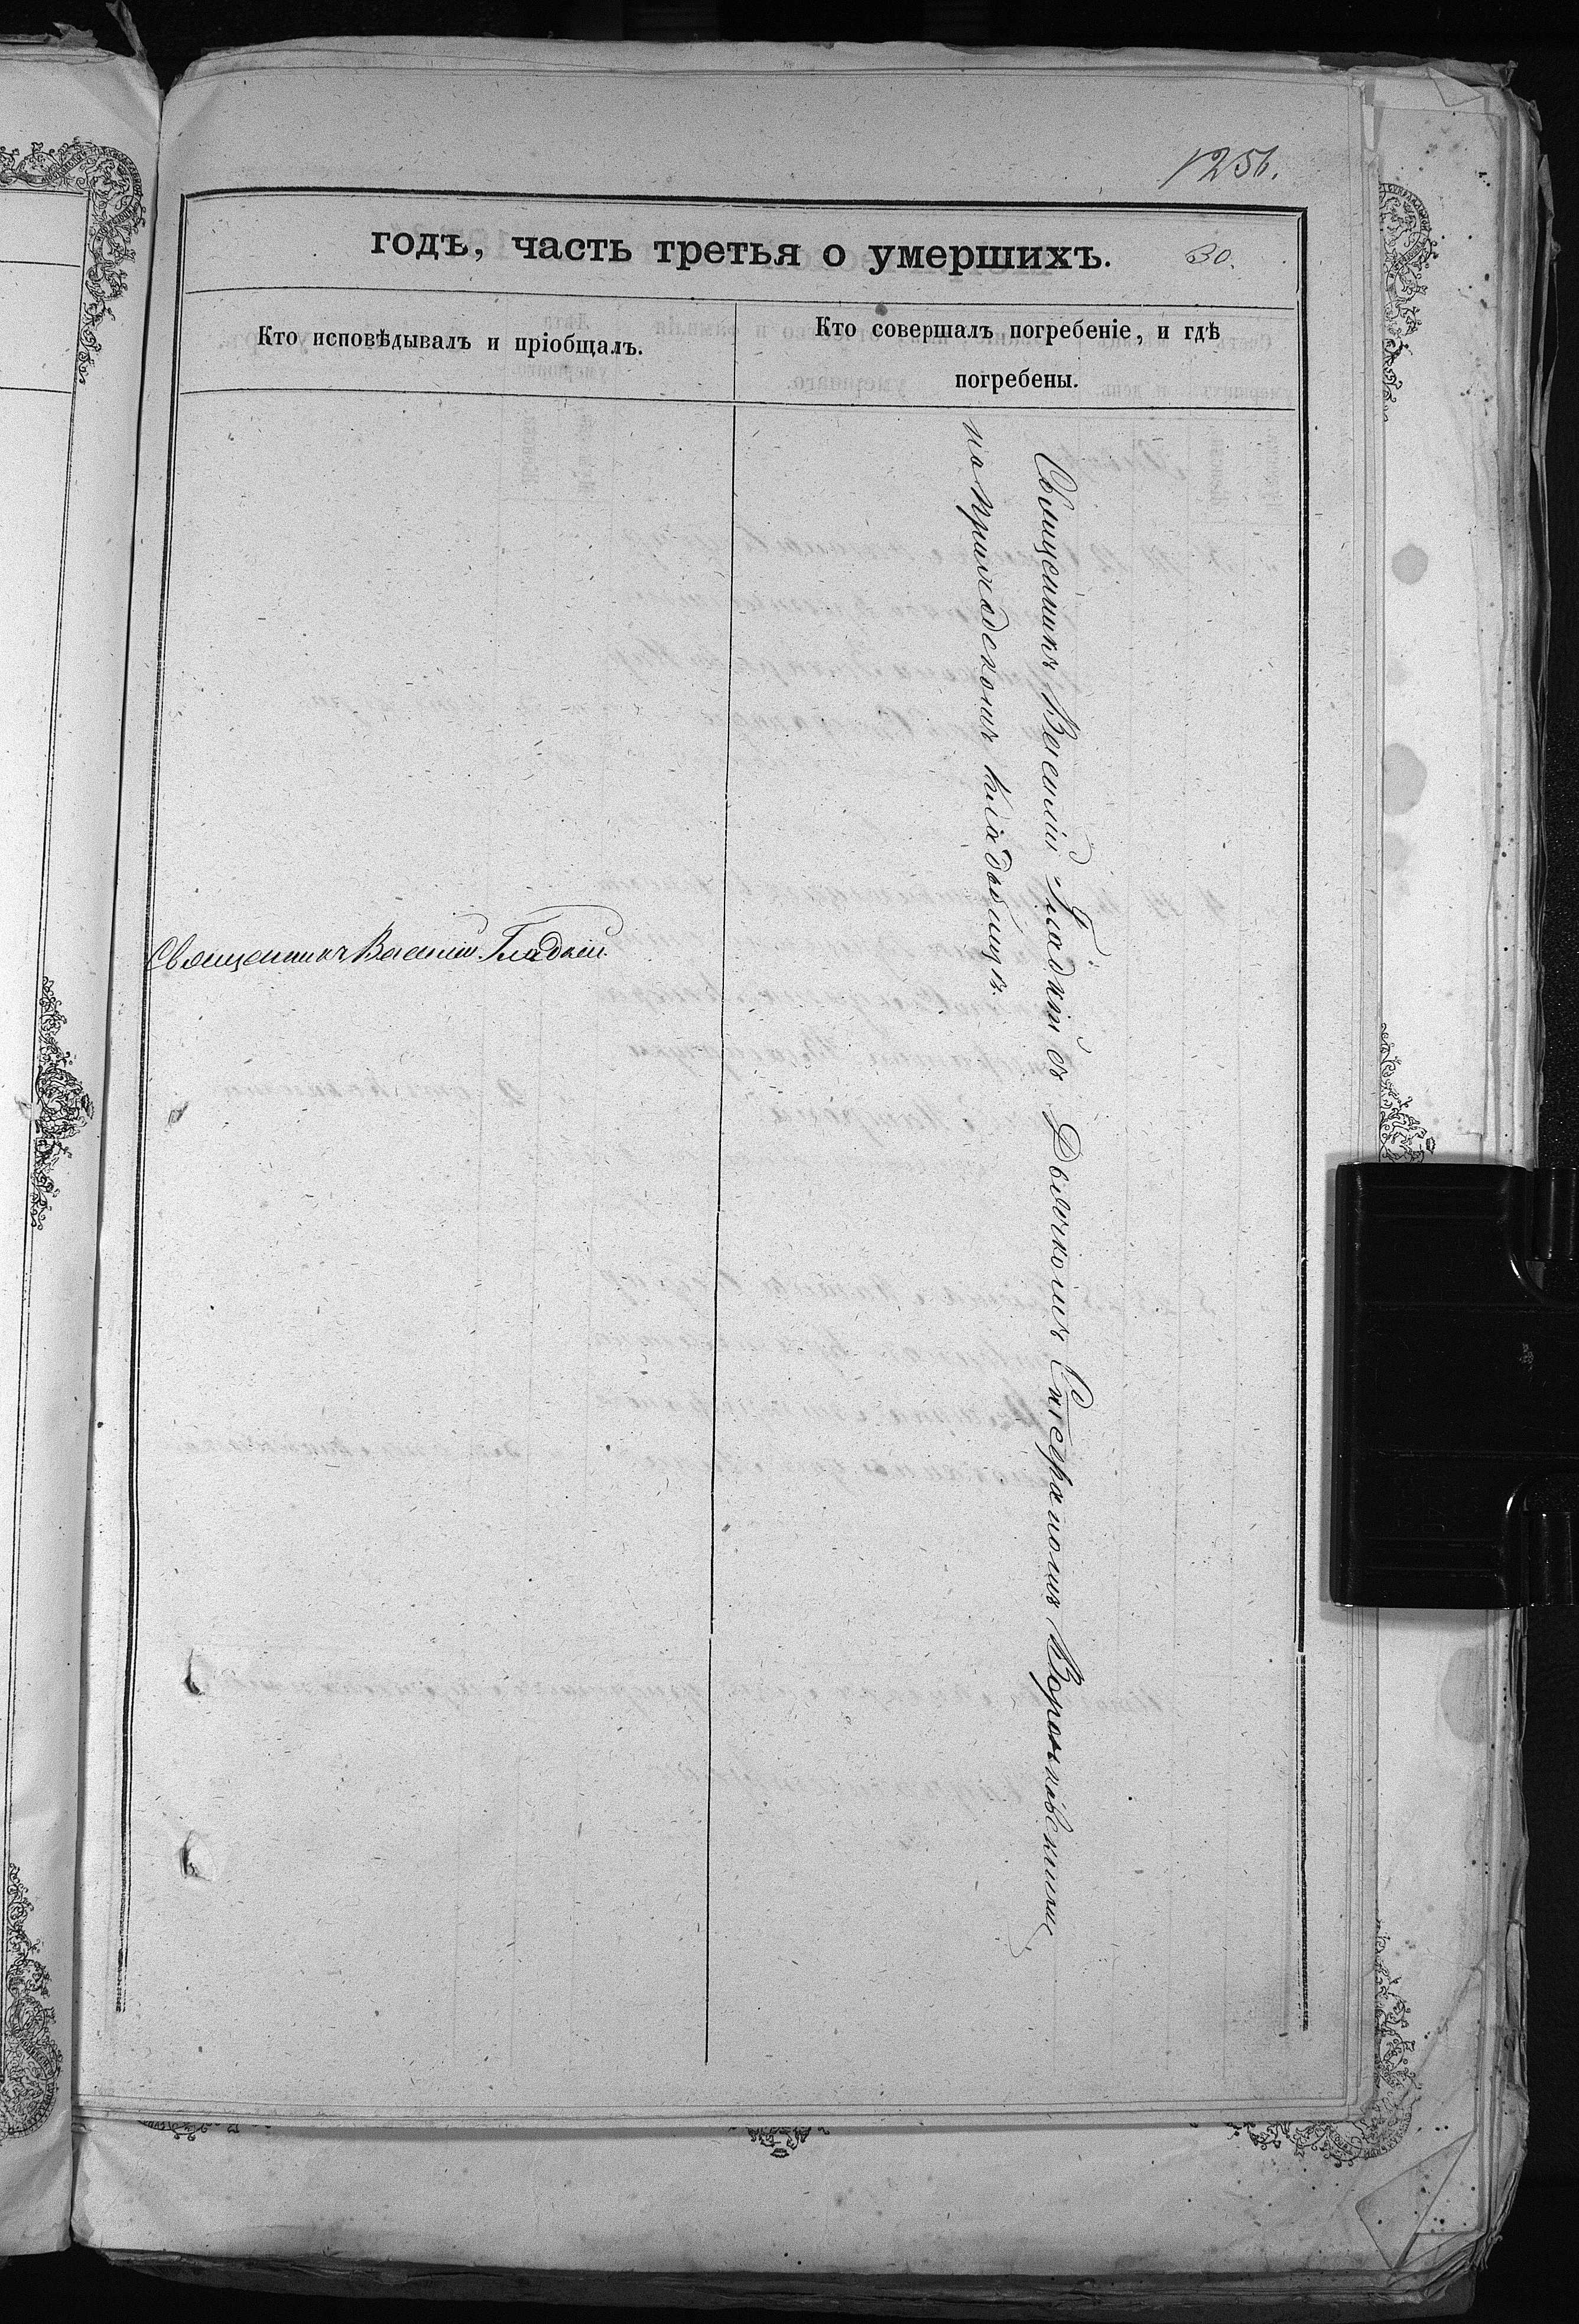 1256.
годъ, часть третья о умершихъ. 30.
Кто исповѣдывалъ и пріобщалъ.
Кто совершалъ погребеніе, и гдѣ
погребены.
Священникъ Василій Гладкій.
Священникъ Василій Гладкій съ Дьячкомъ Стефаномъ Воронковскимъ
на приходскомъ кладбищѣ.